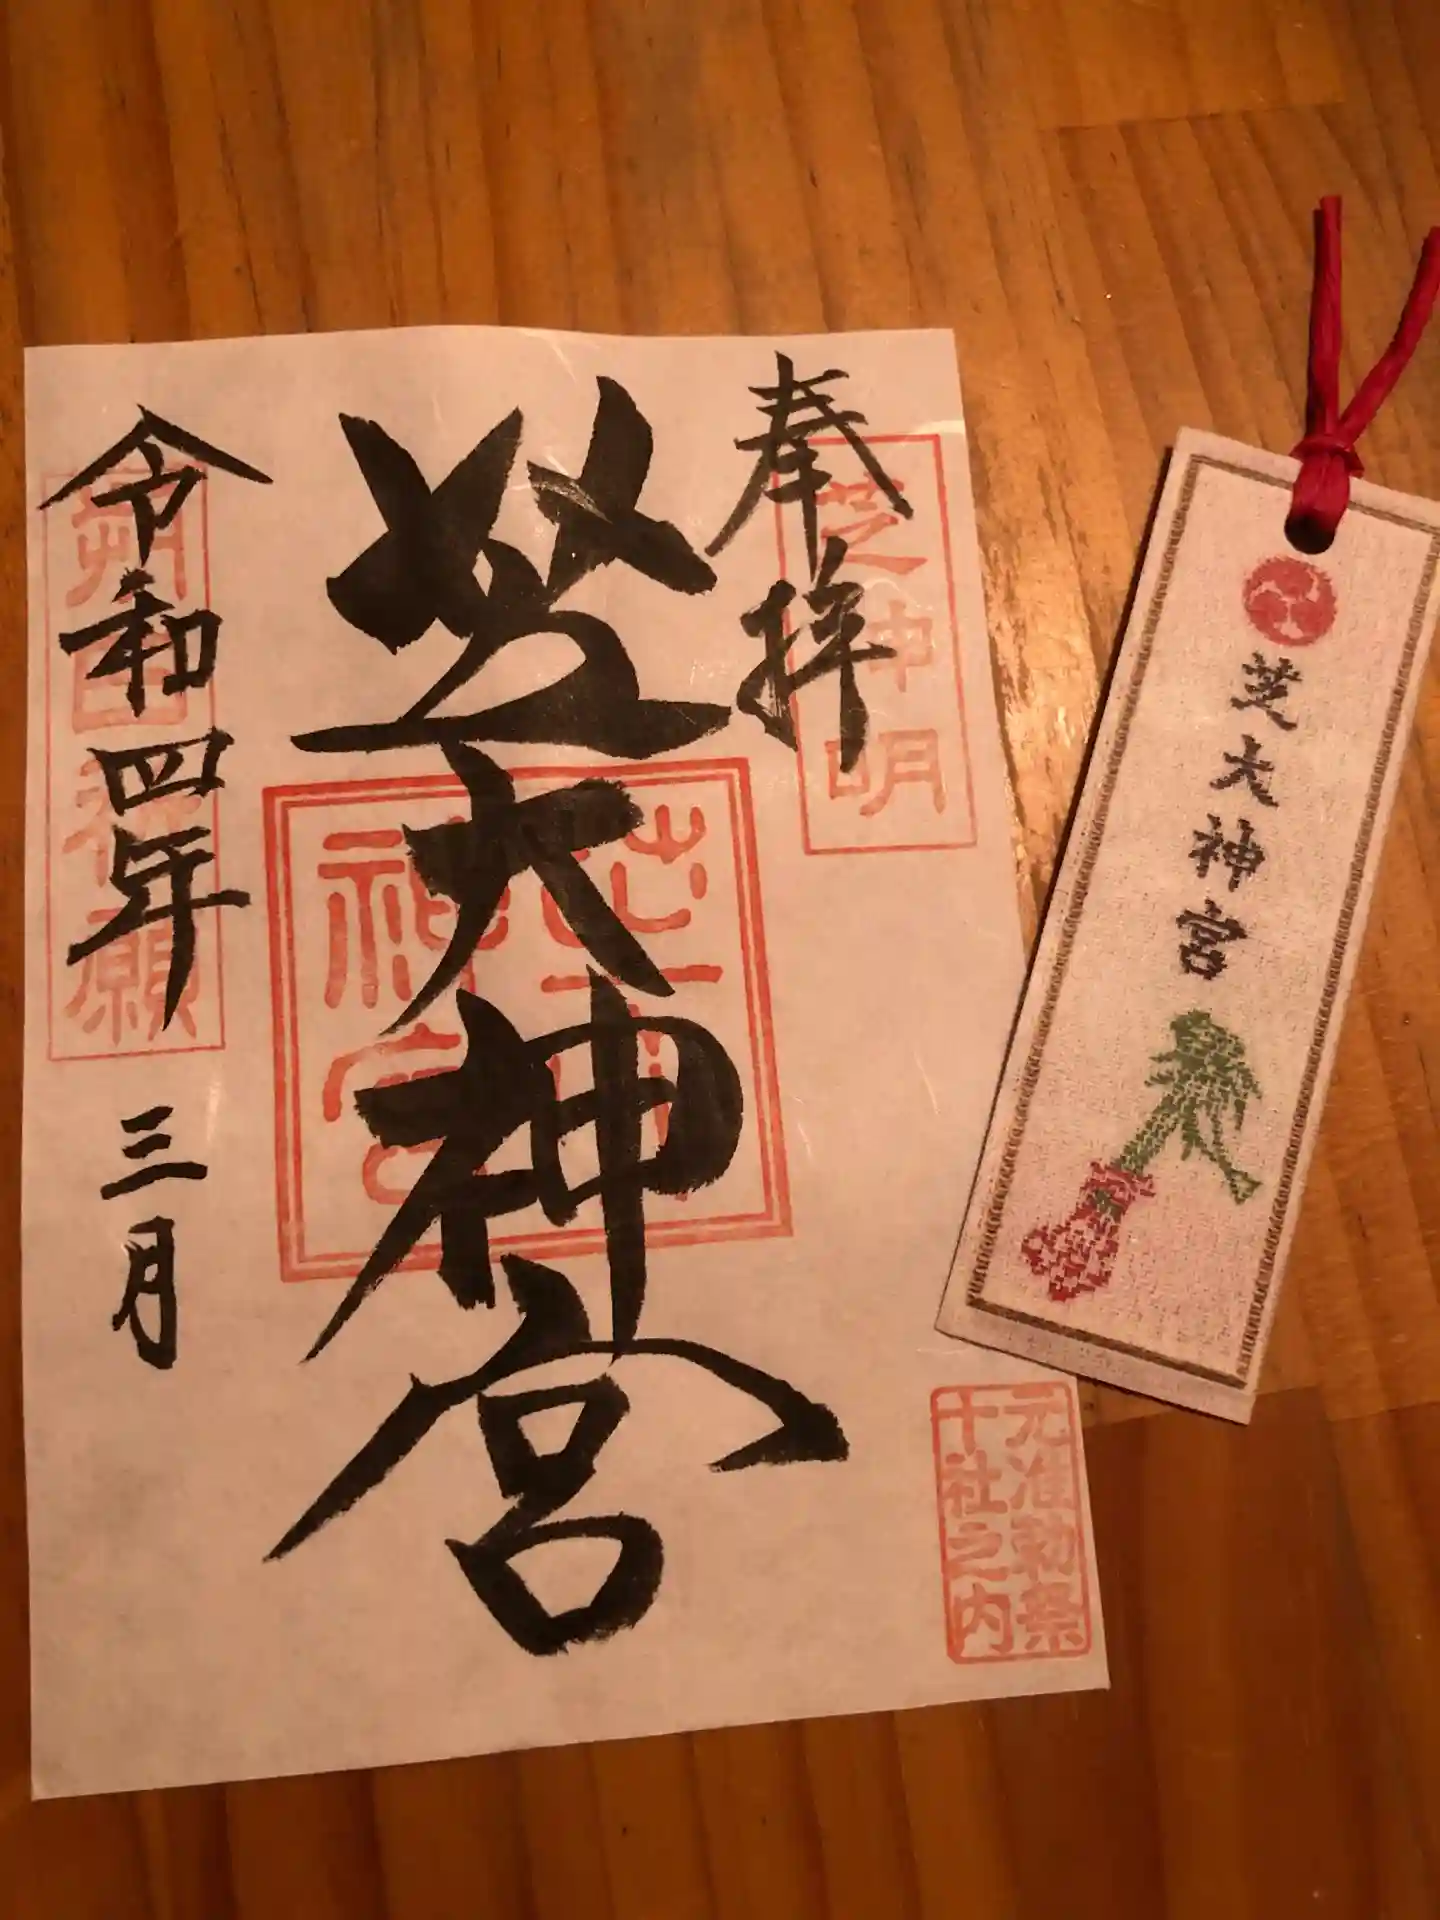 奉拝
芝神明
芝大神宮
芝大
神宮
令和四年 三月
元准勅祭
十社之内
芝大神宮